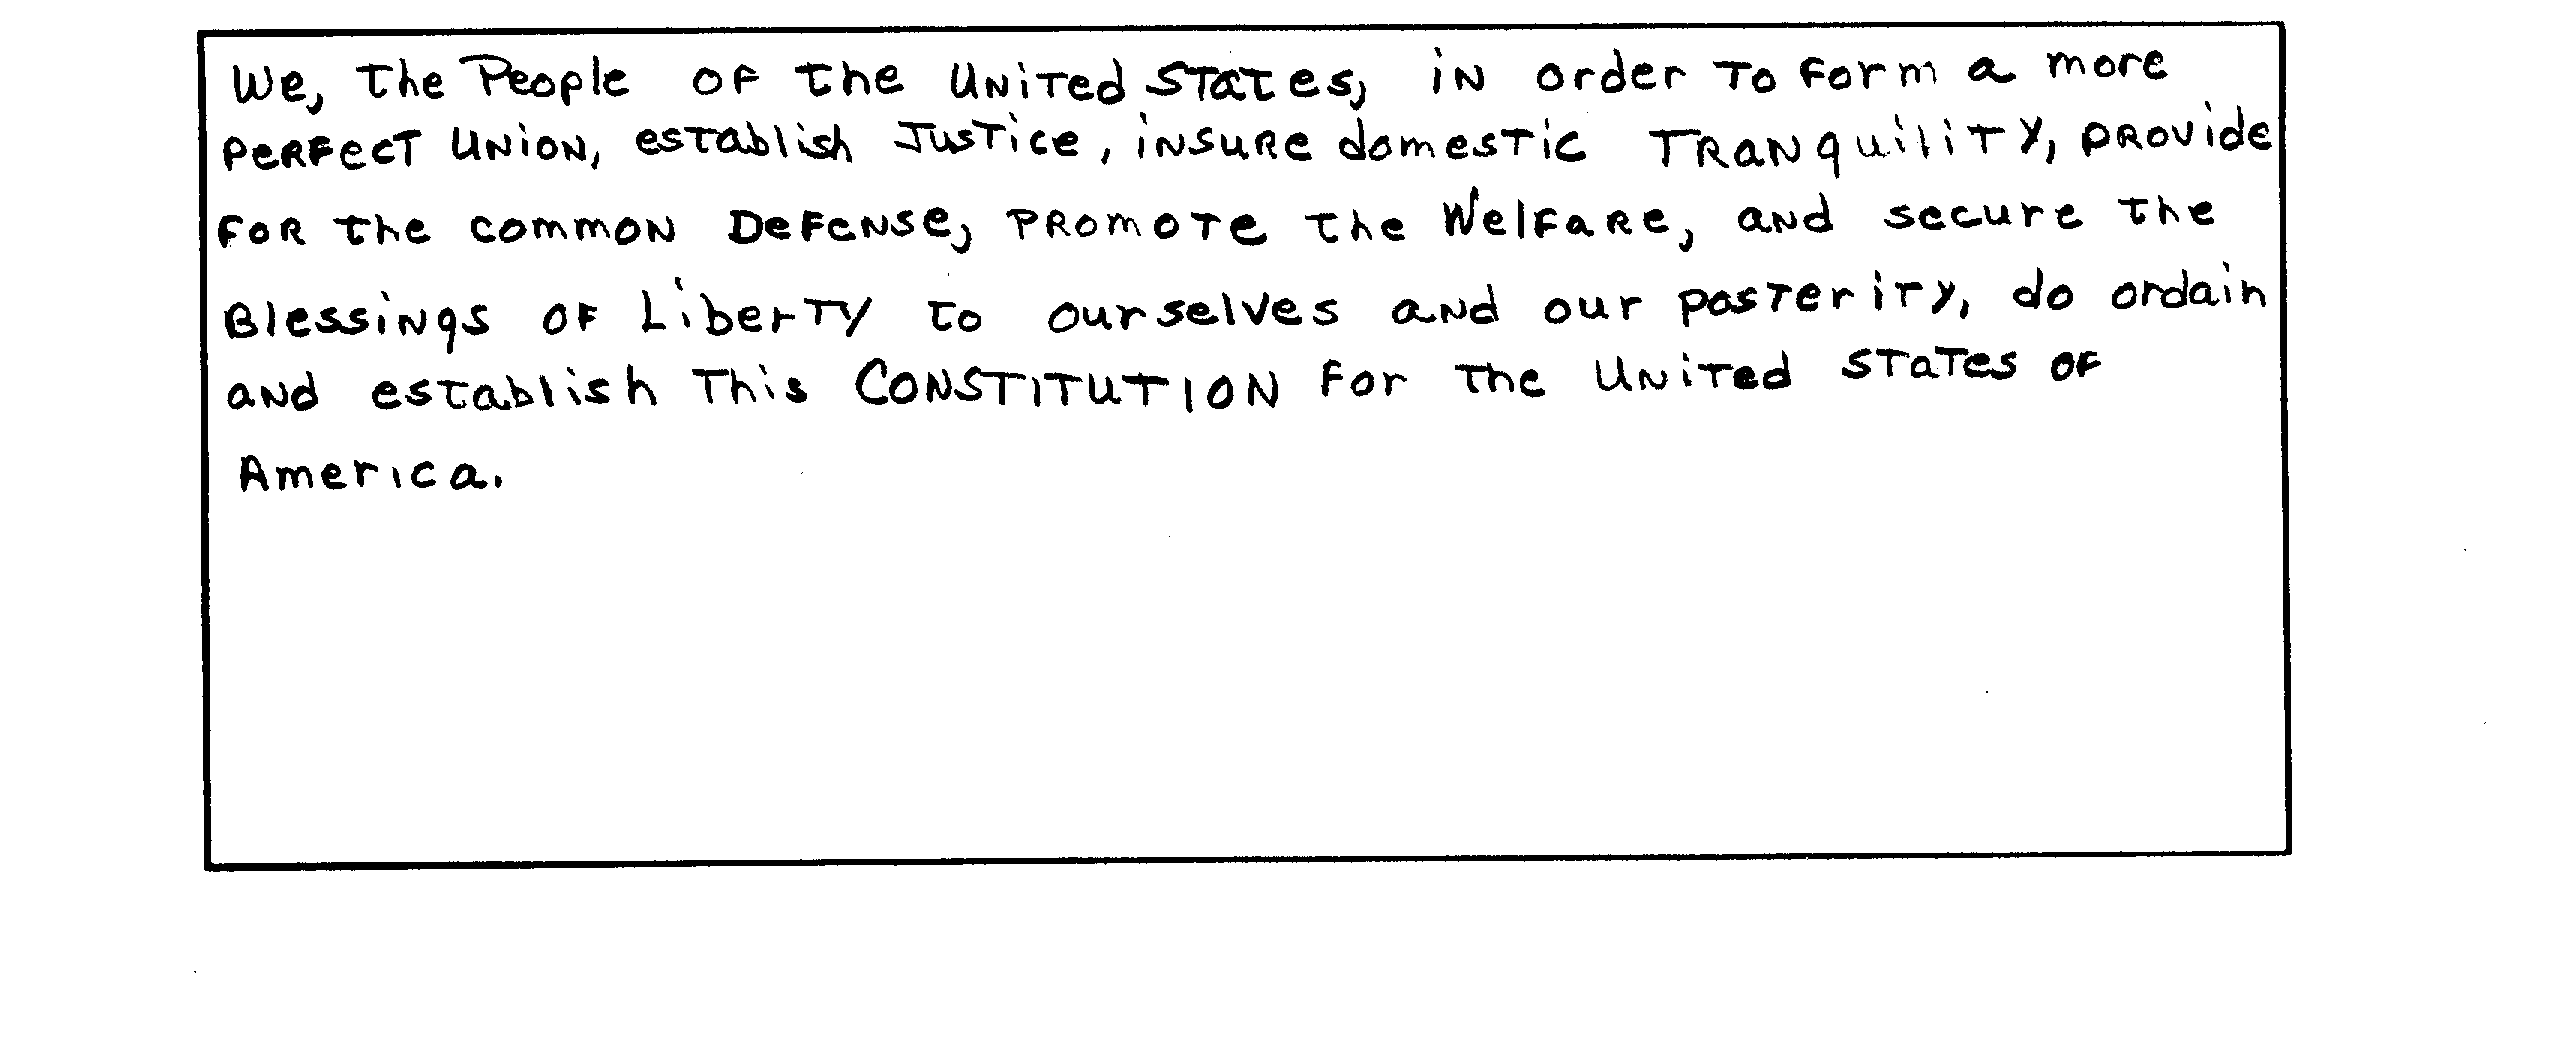 We, the People of the United States, in order to form a more
perfect Union, establish Justice, insure domestic Tranquility, provide
for the common Defense, promote the Welfare, and secure the
Blessings of Liberty to ourselves and our posterity, do ordain
and establish This CONSTITUTION for the United States of
America.